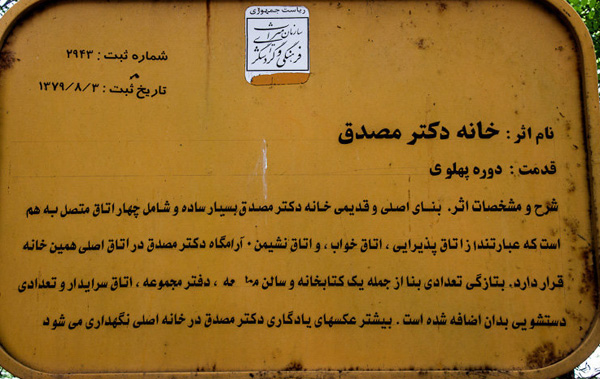 ریاست جمهوری
سازمان میراث
فرهنگی و گردشگری
شماره ثبت : ۲۹۴۳
تاریخ ثبت : ۱۳۷۹/۸/۳
نام اثر : خانه دکتر مصدق
قدمت : دوره پهلوی
شرح و مشخصات اثر. بنای اصلی و قدیمی خانه دکتر مصدق بسیار ساده و شامل چهار اتاق متصل به هم
است که عبارتند؛ ز اتاق پذیرایی ، اتاق خواب ، و اتاق نشیمن . آرامگاه دکتر مصدق در اتاق اصلی همین خانه
قرار دارد. بتازگی تعدادی بنا از جمله یک کتابخانه و سالن ، دفتر مجموعه ، اتاق سرایدار و تعدادی
دستشویی بدان اضافه شده است . بیشتر عکسهای یادگاری دکتر مصدق در خانه اصلی نگهداری می شود